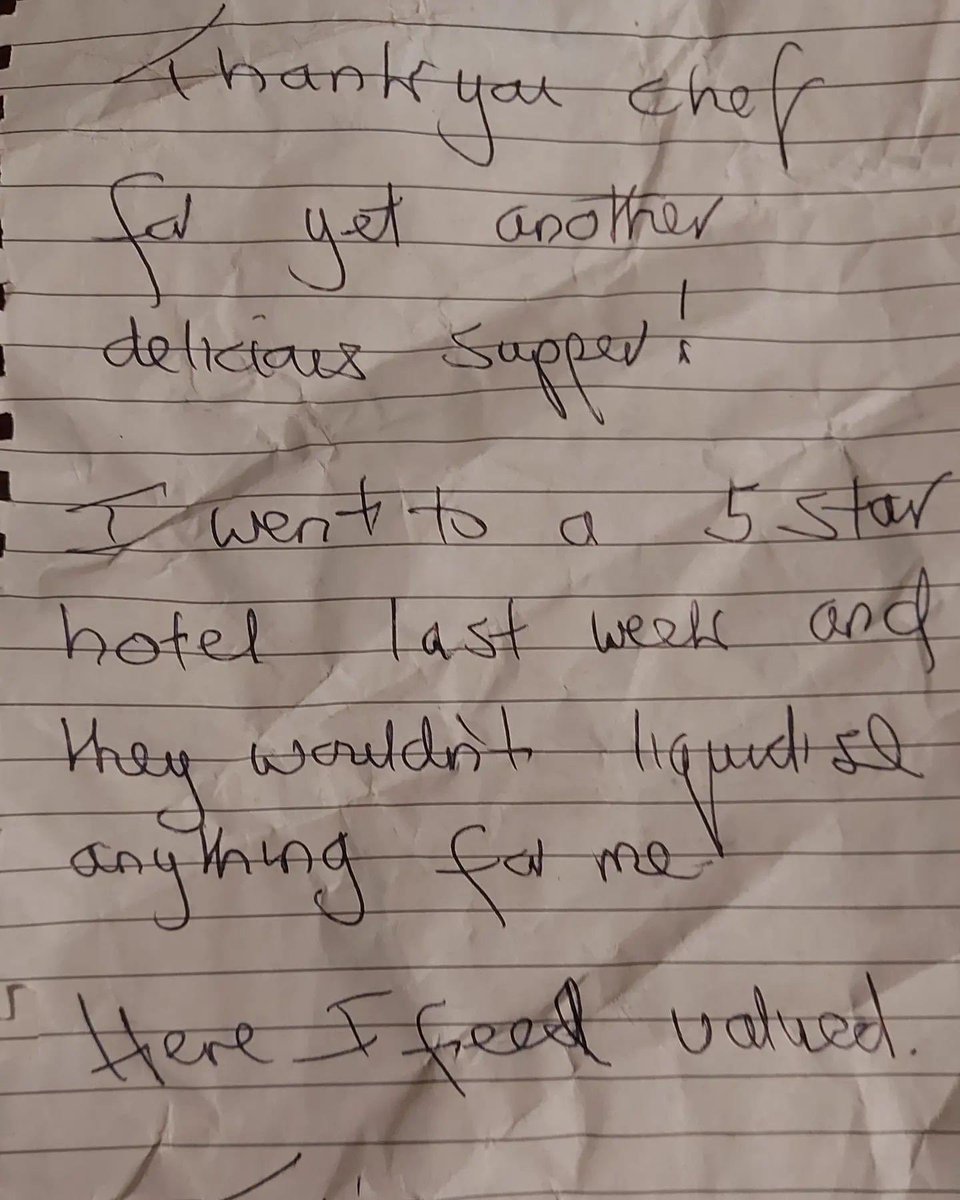 Thank you chef
for yet another
delicious supper!
I went to a 5 star
hotel last week and
they wouldn't liquidise
anything for me
Here I feel valued.